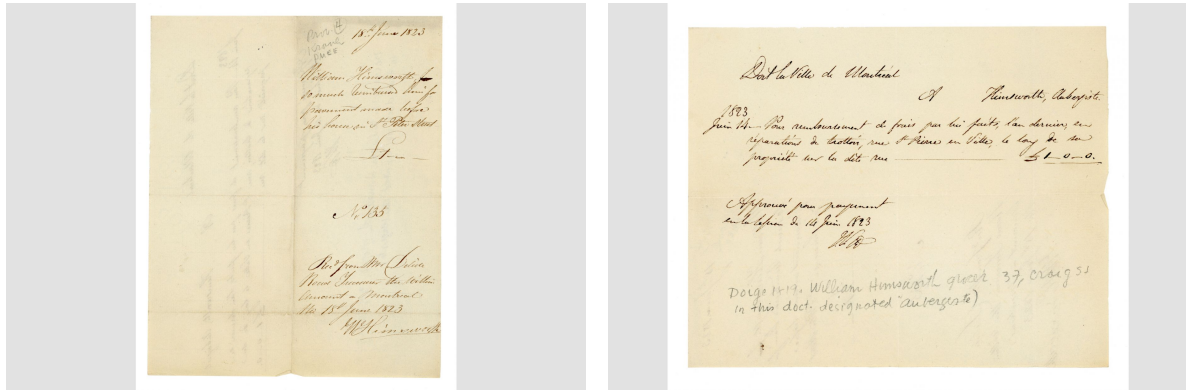 18th June 1823
William Himsworth for
so much reimbursed him for
pavement made before
his house in St Peter Street
£1--
No 135
Recd from Mr Delisle
Road Treasurer the within
amount - Montreal
the 18th June 1823
Wm Himsworth
Doit la Ville de Montréal
A Himsworth, Aubergiste
1823
Juin 14 - Pour remboursement de frais par lui faits, l'an dernier, en
réparations de trottoir, rue St Pierre en Ville, le long de sa
propriété sur la dite rue £1-0-0.
Approuvé pour payement
en la de 14 Juin 1823
Doige 1819. William Himsworth grocer 37, Craig St
in this doct. designated aubergiste)